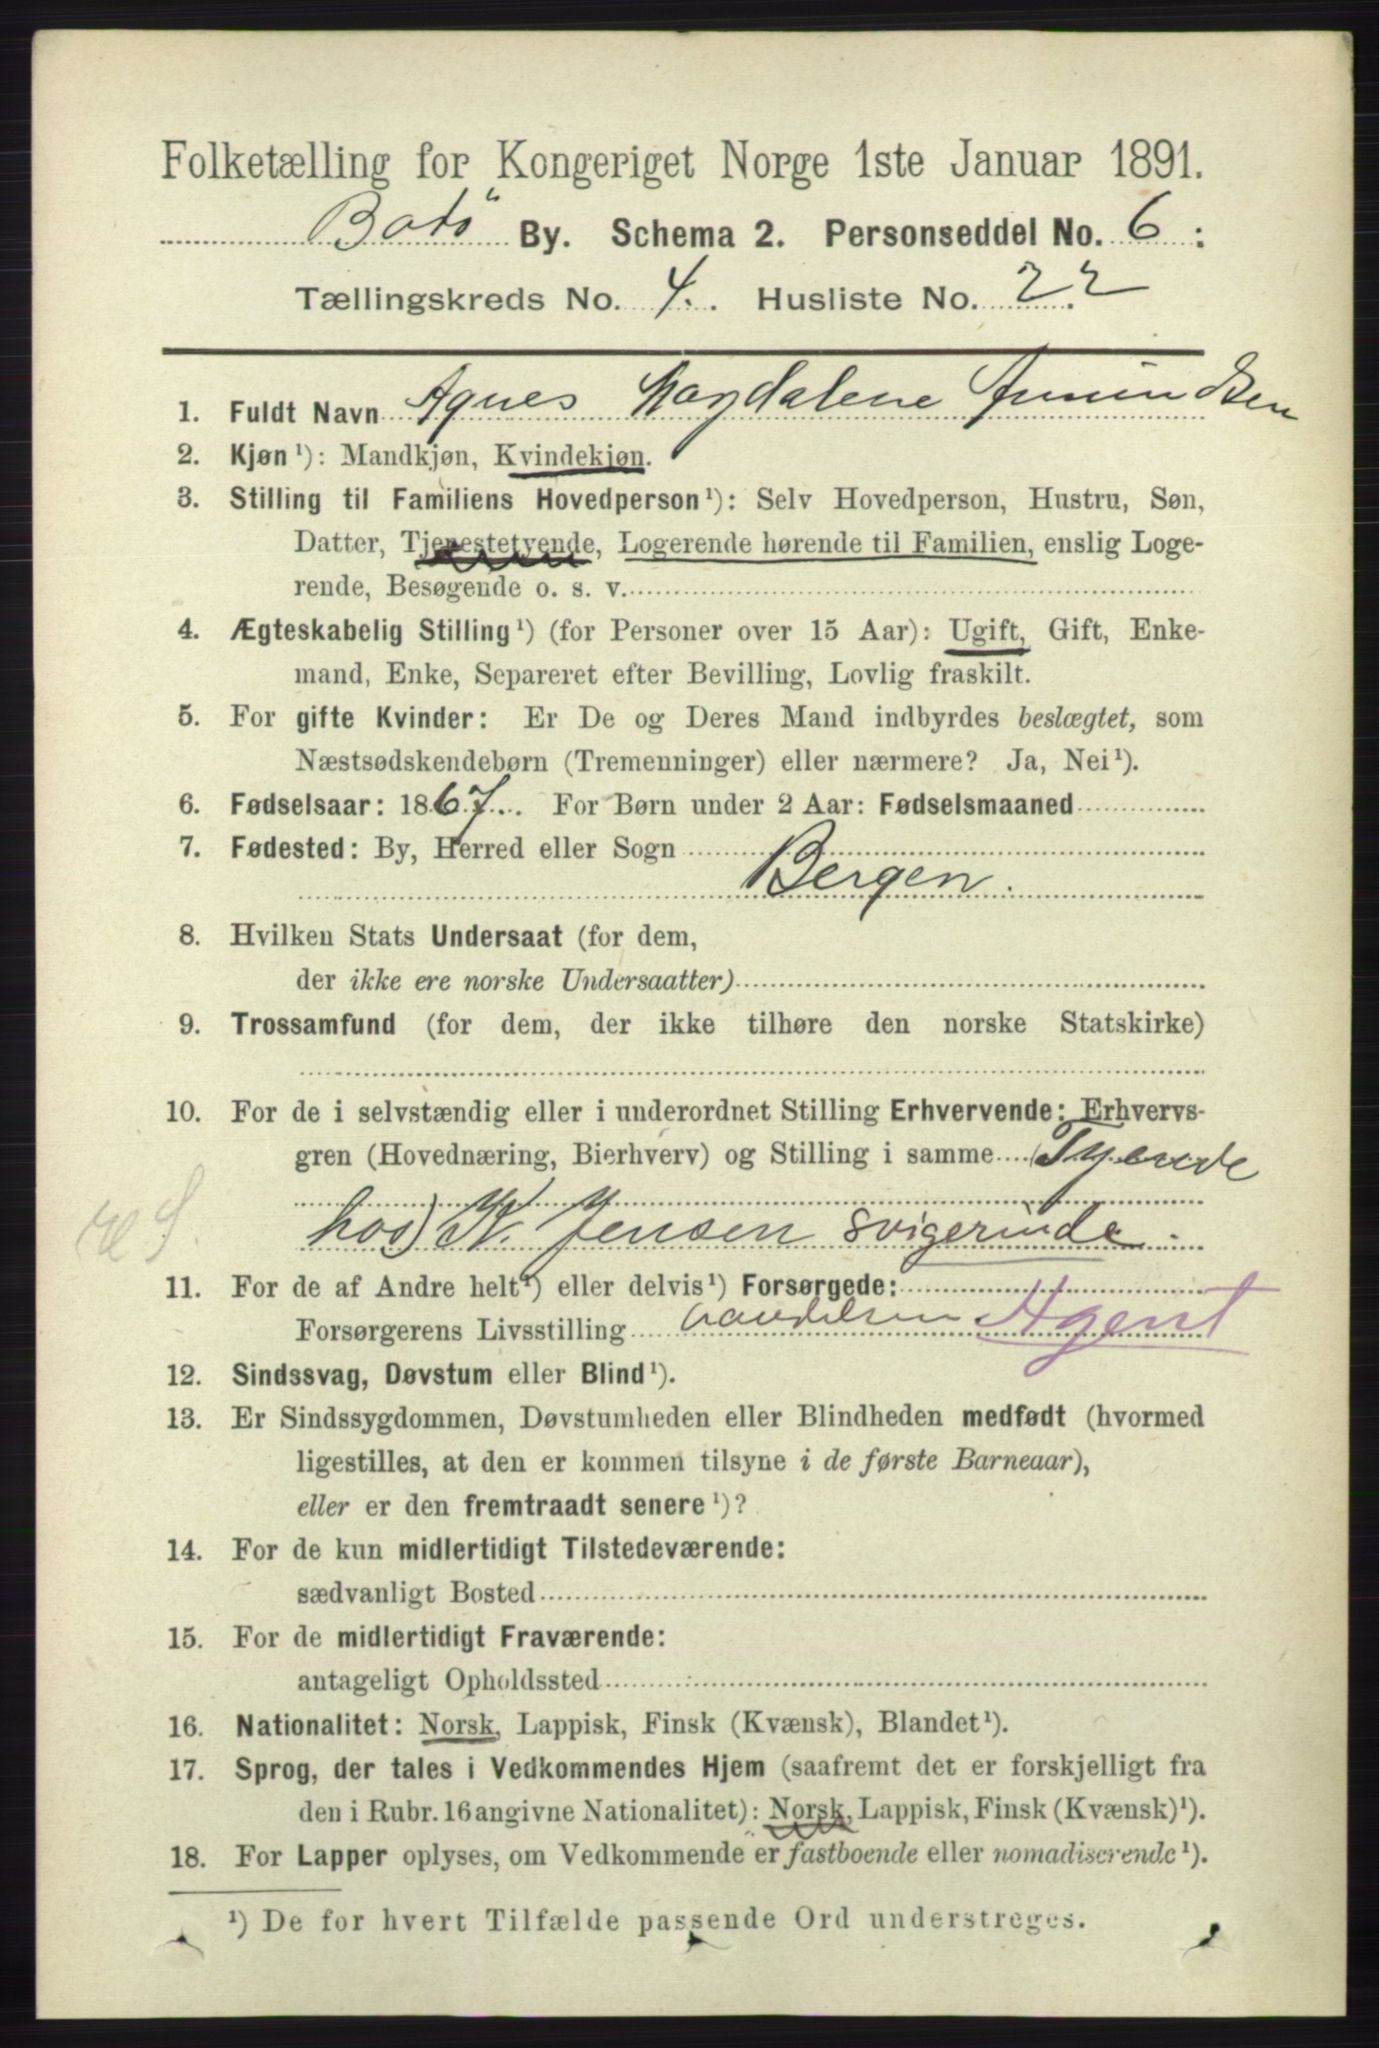 Folketælling for Kongeriget Norge 1ste Januar 1891.
Bodö By. Schema 2. Personseddel No. 6 :
Tællingskreds No. 4. Husliste No. 22
1. Fuldt Navn Agnes Magdalene
2. Kjøn ¹): Mandkjøn, Kvindekjøn.
3. Stilling til Familiens Hovedperson ¹): Selv Hovedperson, Hustru, Søn,
Datter, Tjenestetyende, Logerende hørende til Familien, enslig Loge-
rende, Besøgende o. s. v.
4. Ægteskabelig Stilling ¹) (for Personer over 15 Aar): Ugift, Gift, Enke-
mand, Enke, Separeret efter Bevilling, Lovlig fraskilt.
5. For gifte Kvinder: Er De og Deres Mand indbyrdes beslægtet, som
Næstsødskendebørn (Tremenninger) eller nærmere? Ja, Nei ¹).
6. Fødselsaar: 1867. For Børn under 2 Aar: Fødselsmaaned
7. Fødested: By, Herred eller Sogn
Bergen.
8. Hvilken Stats Undersaat (for dem,
der ikke ere norske Undersaatter)
9. Trossamfund (for dem, der ikke tilhøre den norske Statskirke)
10. For de i selvstændig eller i underordnet Stilling Erhvervende: Erhvervs-
gren (Hovednæring, Bierhverv) og Stilling i samme (Tyende
hos) K. Jensen svigerinde.
11. For de af Andre helt ¹) eller delvis ¹) Forsørgede:
Forsørgerens Livsstilling Agent
12. Sindssvag, Døvstum eller Blind ¹).
13. Er Sindssygdommen, Døvstumheden eller Blindheden medfødt (hvormed
ligestilles, at den er kommen tilsyne i de første Barneaar),
eller er den fremtraadt senere ¹)?
14. For de kun midlertidigt Tilstedeværende:
sædvanligt Bosted
15. For de midlertidigt Fraværende:
antageligt Opholdssted
16. Nationalitet: Norsk, Lappisk, Finsk (Kvænsk), Blandet ¹).
17. Sprog, der tales i Vedkommendes Hjem (saafremt det er forskjelligt fra
den i Rubr. 16 angivne Nationalitet): Norsk, Lappisk, Finsk (Kvænsk) ¹).
18. For Lapper oplyses, om Vedkommende er fastboende eller nomadiserende ¹).
¹) De for hvert Tilfælde passende Ord understreges.